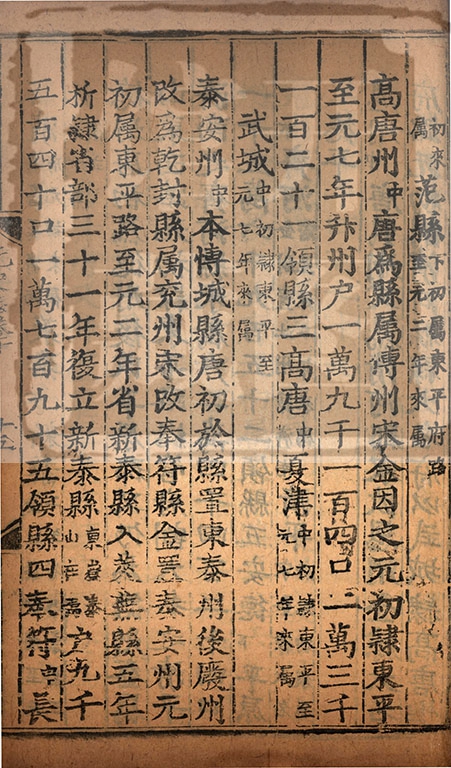 初來屬范縣下初屬東平府路至元二年來属
高唐州中唐爲縣属博州宋金因之元初隷東平
至元七年升州户一萬九千一百四口一萬三千
一百二十一領縣三高唐中夏津中初隷東平至元七年來屬
武城中初隷東平至元七年來屬
泰安州中本博城縣唐初於縣置東泰州後廢州
改爲乾封縣属兖州宋改奉符縣金置泰安州元
初属東平路至元二年省新泰縣入萊蕪縣五年
析隷省部三十一年復立新泰縣東嶽泰山在焉户九千
五百四十口一萬七百九十五領縣四奉符中長